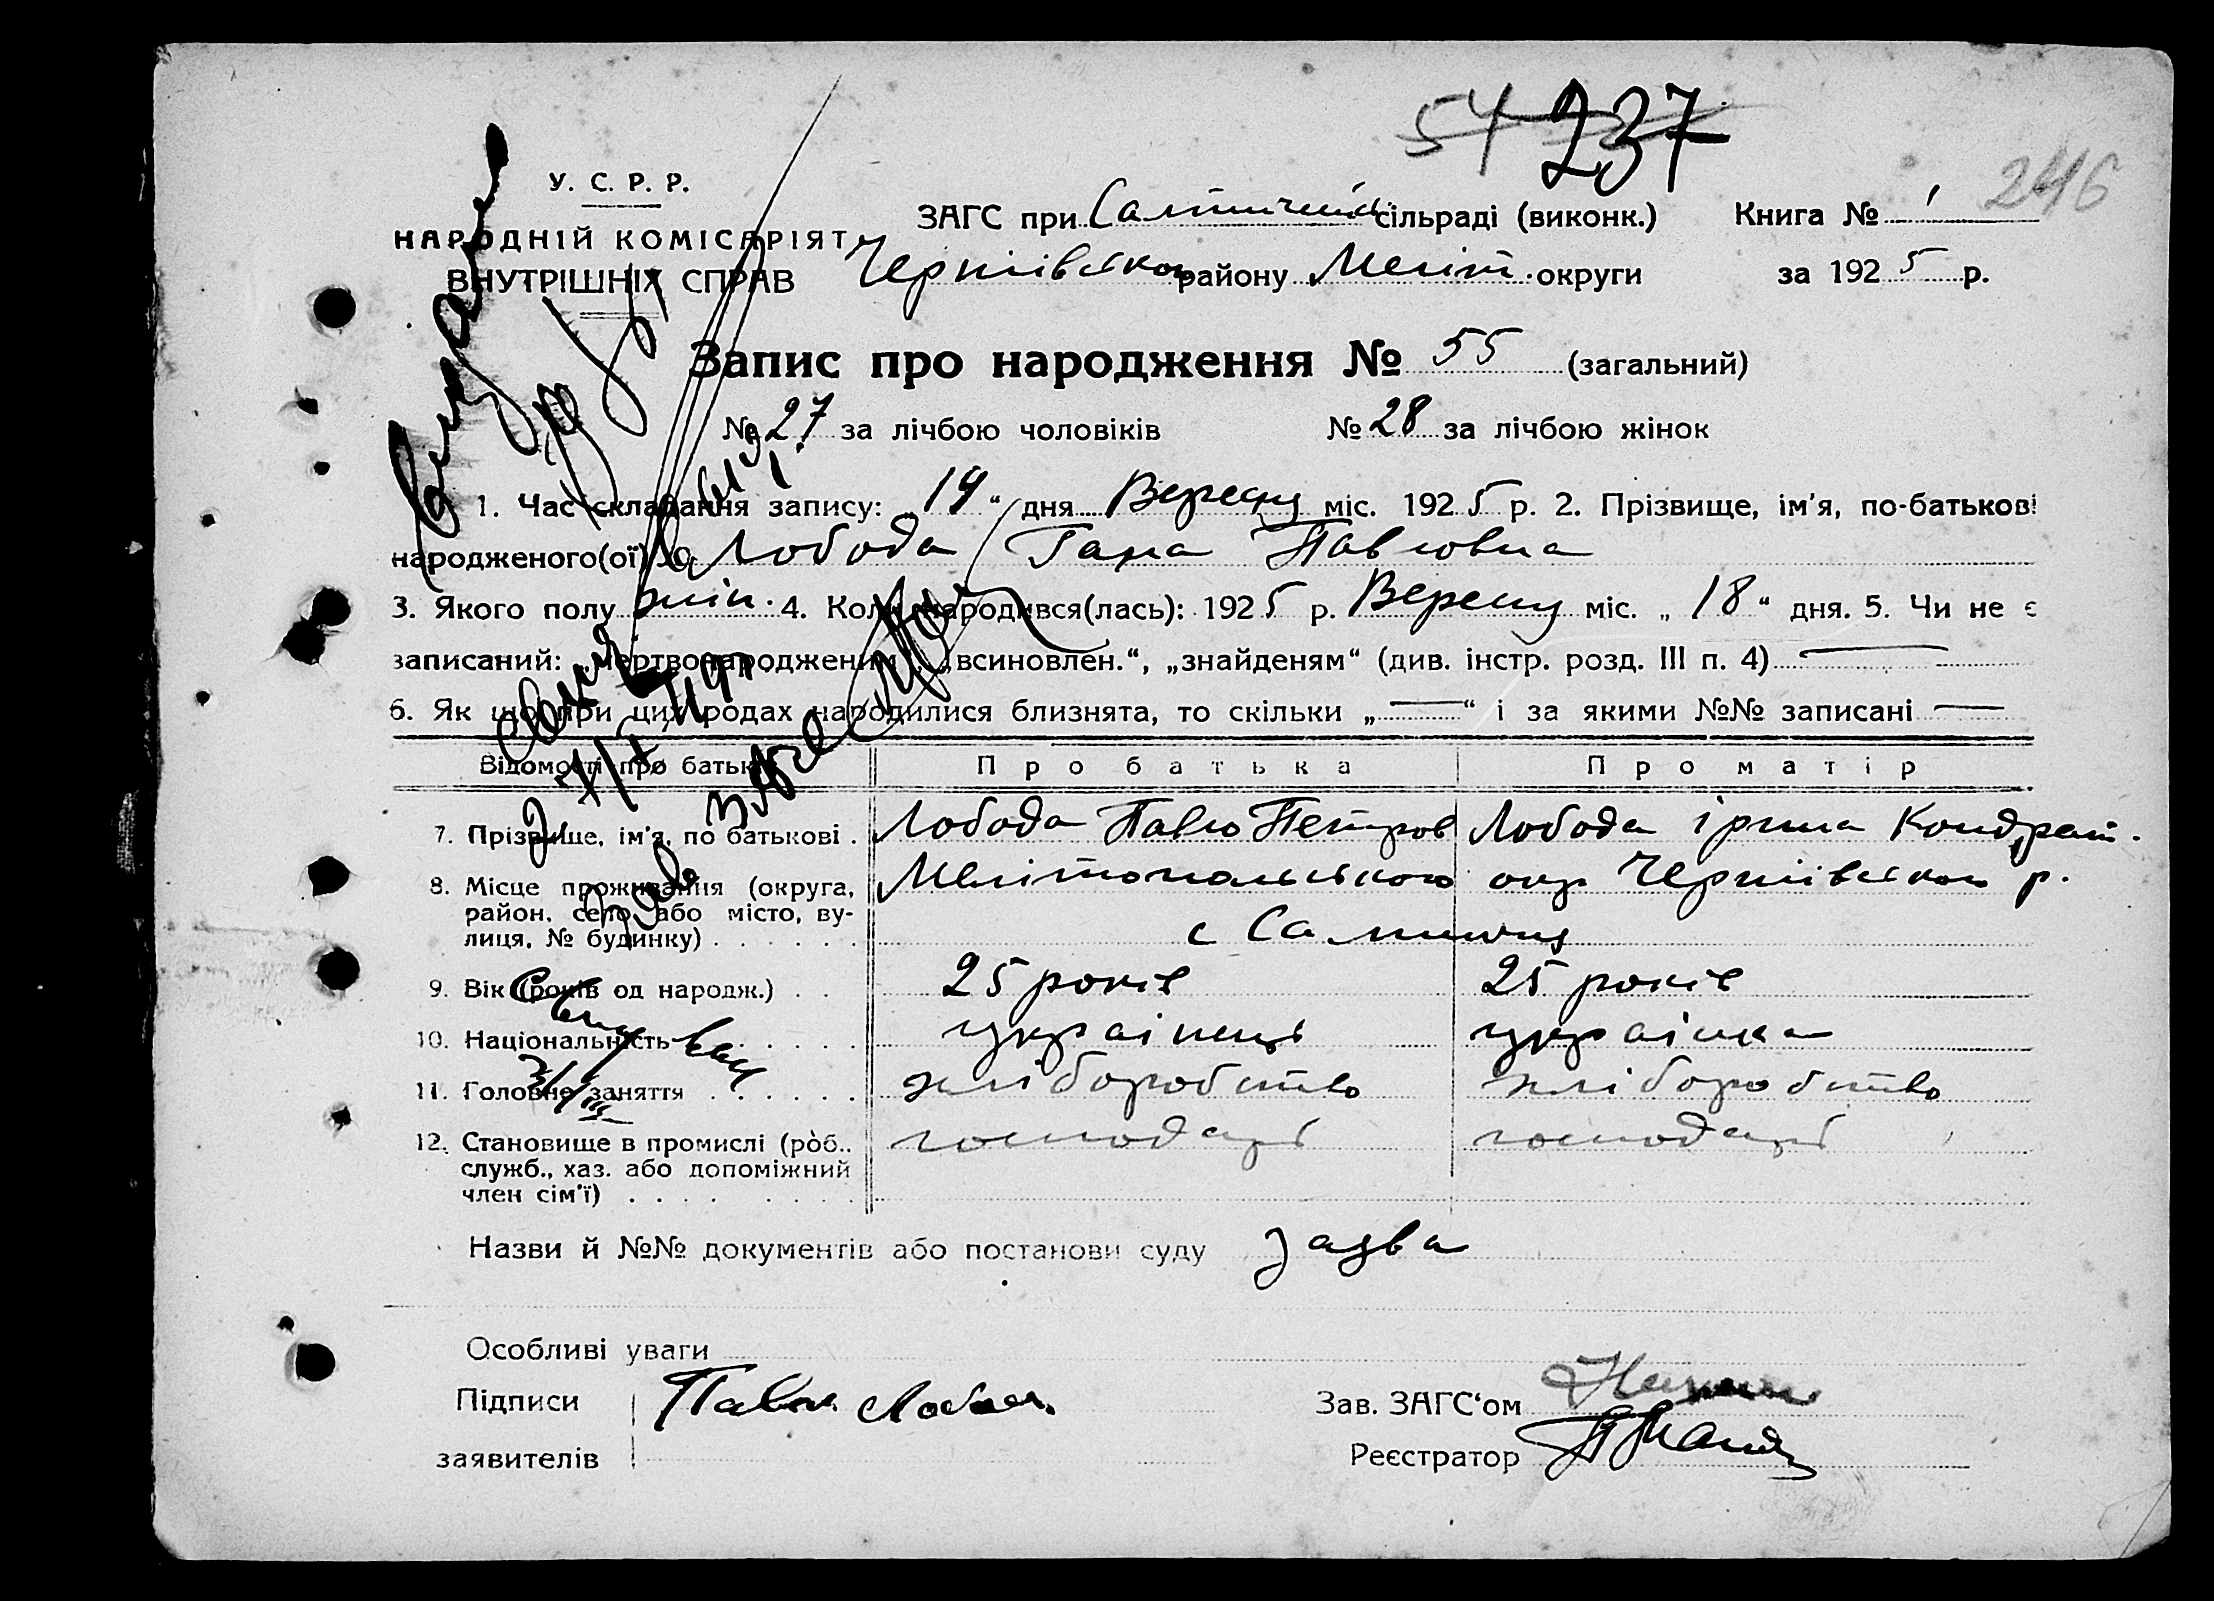 54 237
246
У. С. Р. Р.
НАРОДНІЙ КОМІСАРІЯТ
ВНУТРІШНІХ СПРАВ
ЗАГС при сільраді (виконк.) Книга № 1
Чернігівського району Меліт. округи за 1925 р.
Запис про народження № 55 (загальний)
№ 27 за лічбою чоловіків № 28 за лічбою жінок
1. Час складання запису: „19“ дня Вересня міс. 1925 р. 2. Прізвище, ім'я, по-батькові
народженого(ої) Лобода Гана Павловна
3. Якого полу жін. 4. Коли народився(лась): 1925 р. Вересня міс. „18“ дня. 5. Чи не є
записаний: „мертвонародженим“, „всиновлен.“, „знайденям“ (див. інстр. розд. III п. 4) —
6. Як що при цих родах народилися близнята, то скільки „—“ і за якими №№ записані —
Відомості про батьків Про батька Про матір
7. Прізвище, ім'я, по батькові . Лобода Павло Петров Лобода Ірина Кондрат.
8. Місце проживання (округа, район, село або місто, вулиця, № будинку) . . . . . . Мелітопольського окр Чернігівського р.
с Салтичия
9. Вік (років од народж.) . . 25 років 25 років
10. Національність . . . . . українець українка
11. Головне заняття . . . . . . хліборобство хліборобство
12. Становище в промислі (роб., служб., хаз. або допоміжний член сім'ї) . . . . . . . . господарі господарі
Назви й №№ документів або постанови суду заява
Особливі уваги
Підписи Павло Лобода Зав. ЗАГС'ом
заявителів Реєстратор